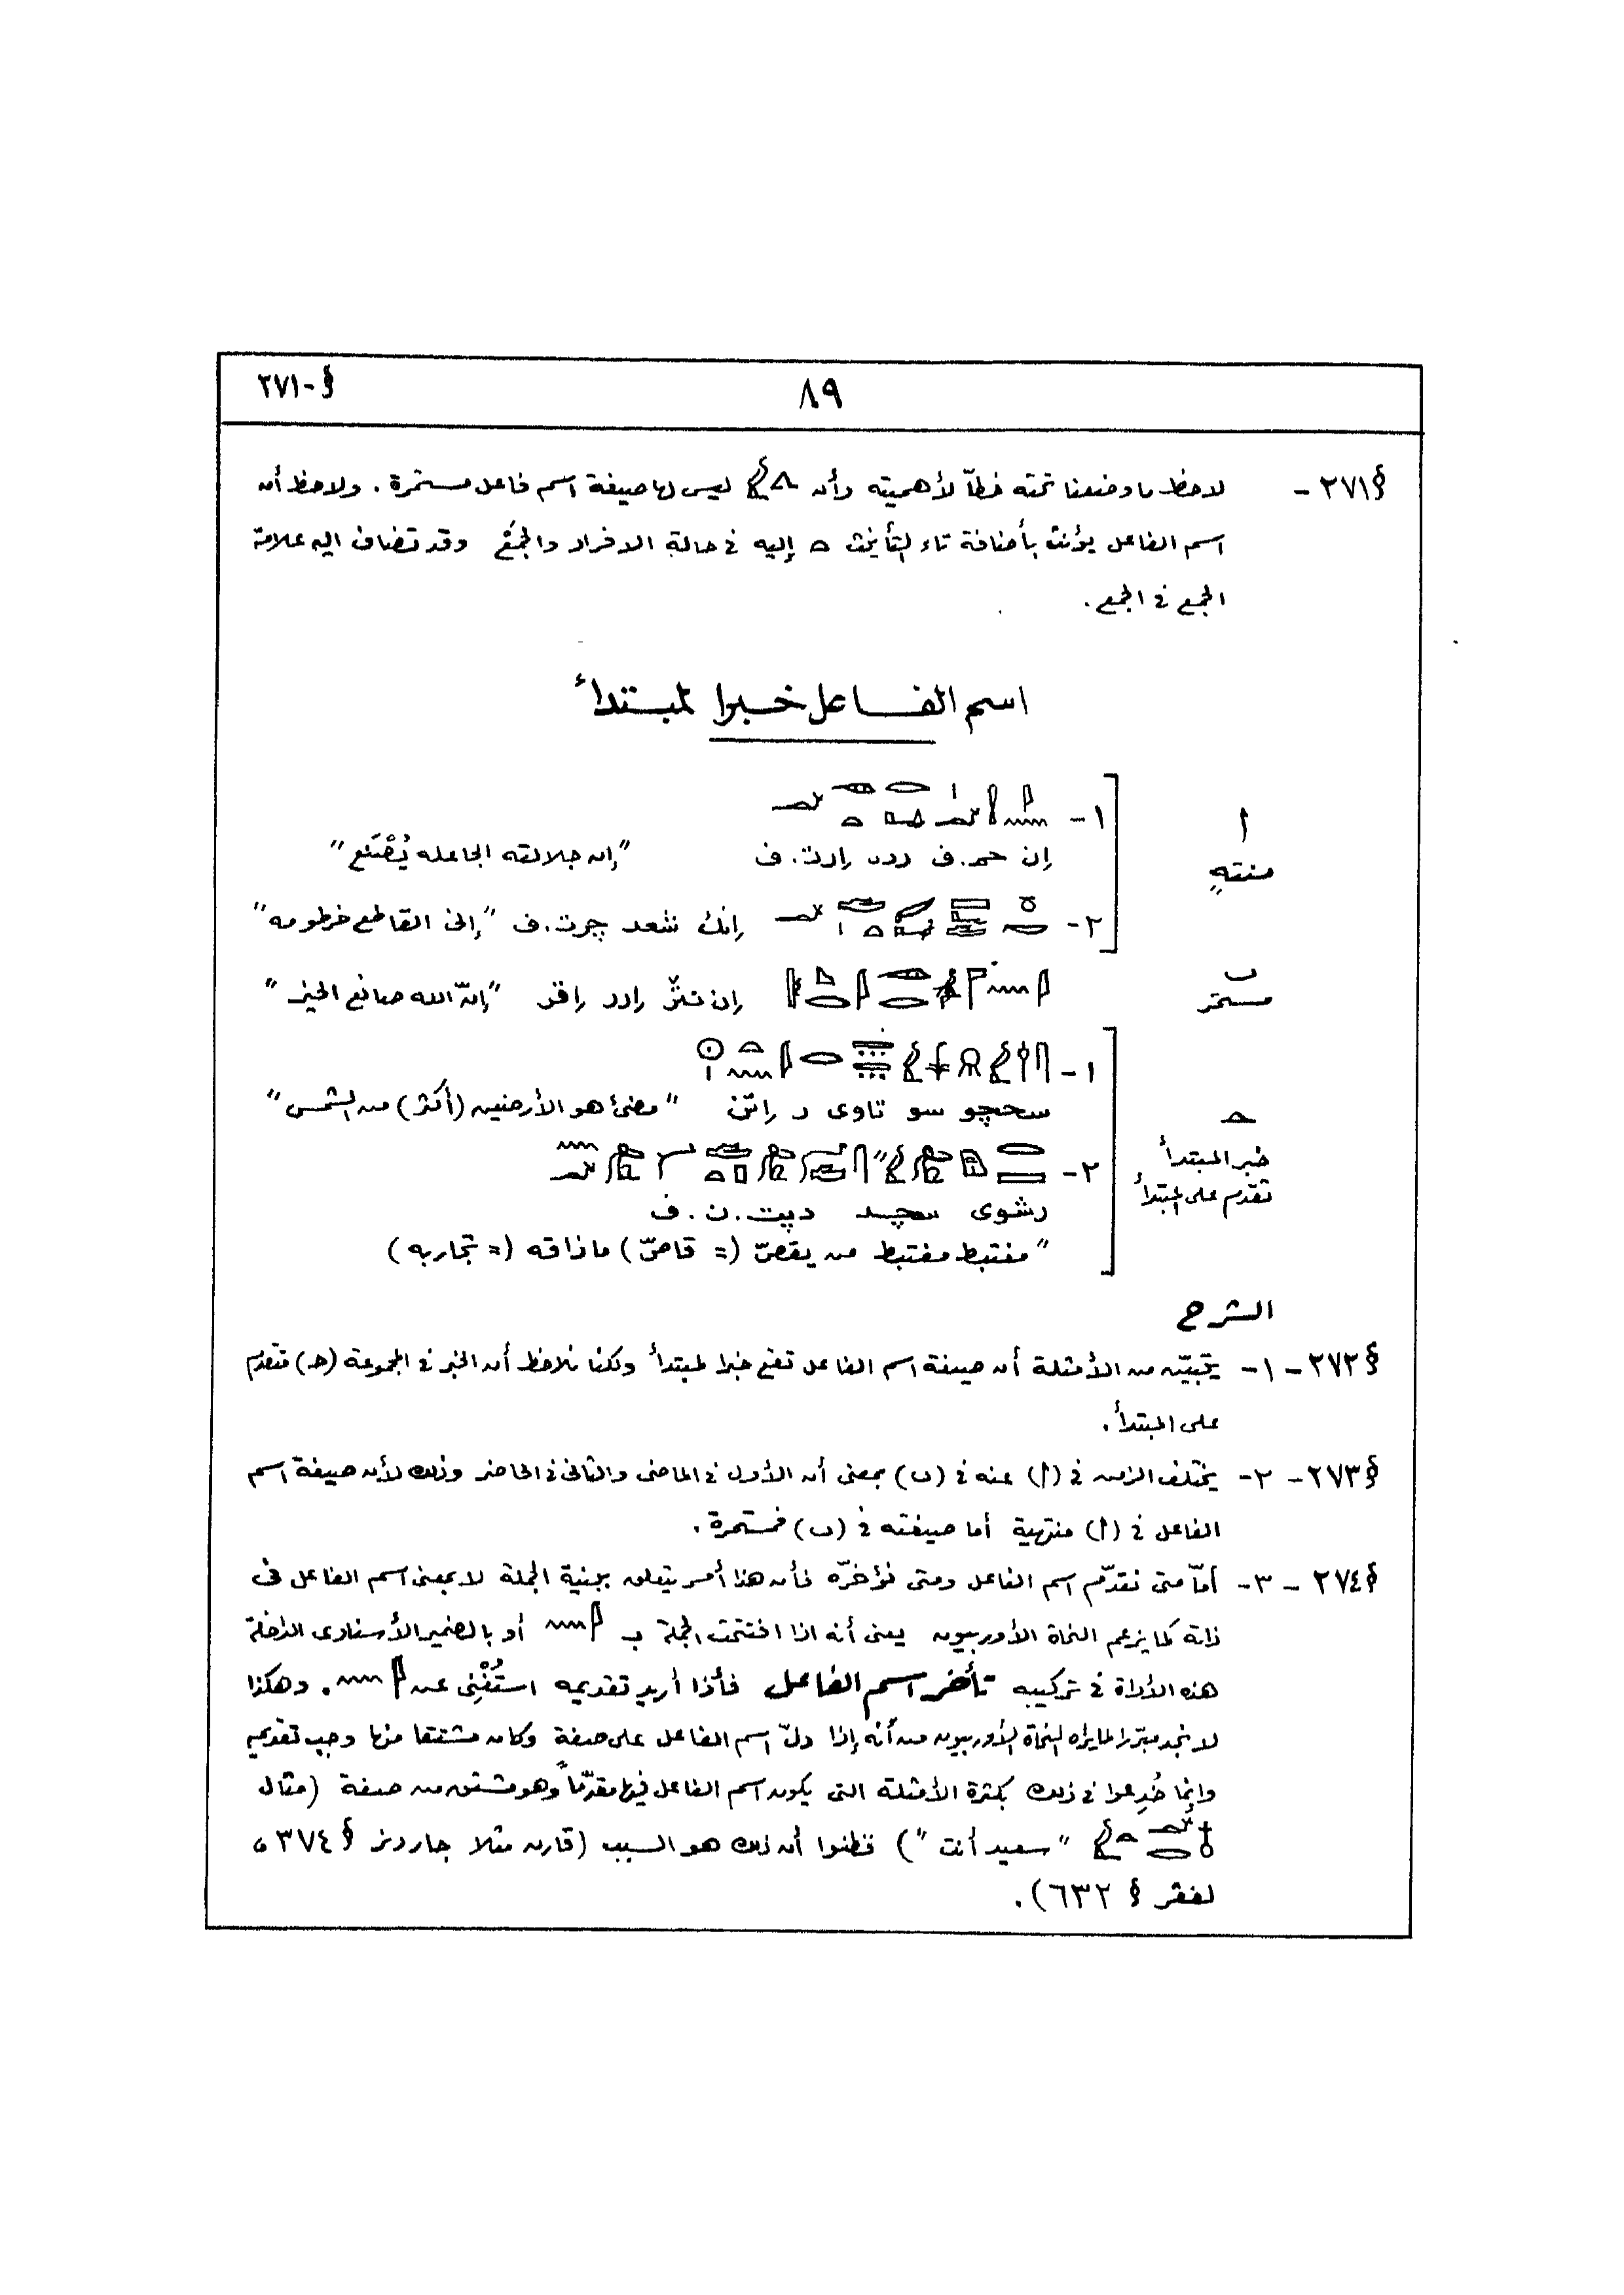 §-٢٧١
٨٩
§٢٧١ - لاحظ ما وضعنا تحته خطّاً لأهميته وأن 𓂻𓅱 ليس لها صيغة اسم فاعل مستمرة . ولاحظ أن
اسم الفاعل يؤنث بأضافة تاء التأنيث 𓏏 إليه فى حالة الافراد والجمع وقد تضاف اليه علامة
الجمع فى الجمع .
اسم الفاعل خبرا لمبتدأ
أ
منتهٍ
١-
إن حم. ف ردى إرت. ف "إن جلالته الجاعله يُصْنَع"
٢- إنك شعد چرت. ف "إنى القاطع خرطومه"
ب
مستمر
إن نتر إرر إقر "إنّ الله صانع الخير"
حـ
خبر المبتدأ
تقدم على المبتدأ
١-
سحچو سو تاوى ر إتن "مضئ هو الأرضين (أكثر) من الشمس"
٢-
رشوى سچد دپت. ن. ف
"مغتبط مغتبط من يقصّ (= قاصّ) ما ذاقه (= تجاربه)
الشرح
§٢٧٢ - ١- يتبيّن من الأمثلة أن صيغة اسم الفاعل تقع خبرا لمبتدأ ولكنا نلاحظ أن الخبر فى المجموعة (حـ) متقدم
على المبتدأ .
§٢٧٣ - ٢- يختلف الزمن فى (أ) عنه فى (ب) بمعنى أن الأول فى الماضى والثانى فى الحاضر وذلك لأن صيغة اسم
الفاعل فى (أ) منتهية أما صيغته فى (ب) فمستمرة .
§٢٧٤ - ٣- أمّا متى نقدّم اسم الفاعل ومتى نؤخرّه فأن هذا أمر يتعلق ببنية الجملة لا بمعنى اسم الفاعل فى
ذاته كما يزعم النحاة الأوربيون يعنى أنه اذا افتتحت الجملة بـ 𓇋𓈖 أو بالضمير الأسنادى الداخلة
هذه الأداة فى تركيبه تأخر اسم الفاعل فأذا أريد تقديمه استُغْنِى عن 𓇋𓈖 . وهكذا
لا نجد مبررا لما يراه النحاة الأوربيون من أنه إذا دلّ اسم الفاعل على صفة وكان مشتقا منها وجب تقديمه
وإنما خُدِعوا فى ذلك بكثرة الأمثلة التى يكون اسم الفاعل فيها مقدّماً وهو مشتق من صفة (مثال
𓄤𓆑𓂋𓏏𓅱 "سعيد أنت") فظنوا أن ذلك هو السبب (قارن مثلا جاردنر § ٣٧٤ ،
لفقر § ٦٣٢) .